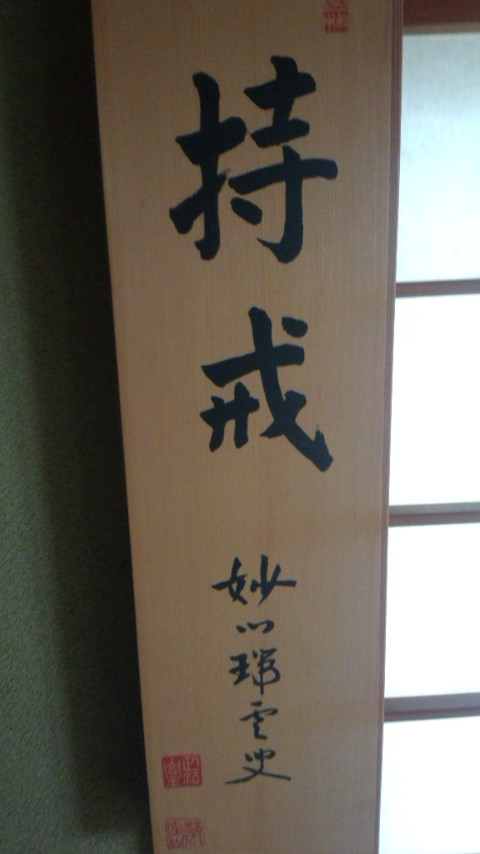 持戒
妙心瑞雲叟